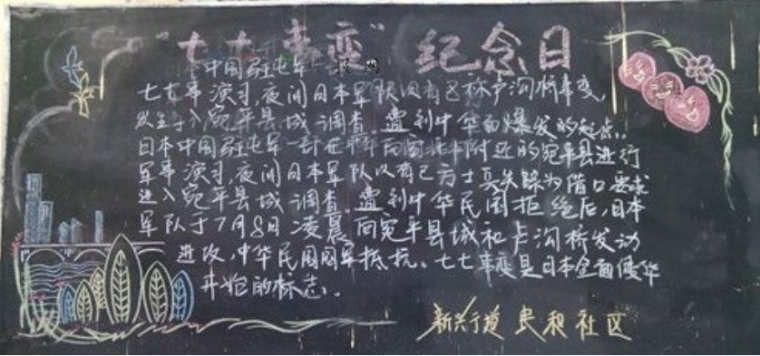 "七七事变"纪念日
中国驻屯军
七七事 演习,夜间日本军队没有 又称卢沟桥事变,
发生于 入宛平县城 调查 遭到中华 爆发的起点。
日本中国驻屯军一部在 附近的宛平县进行
军事演习,夜间日本军队以有己方士兵失踪为借口要求
进入宛平县城调查,遭到中华民国拒绝后,日本
军队于7月8日凌晨向宛平县城和卢沟桥发动
进攻,中华民国国军抵抗。七七事变是日本全面侵华
开始的标志。
新兴街道 民和社区